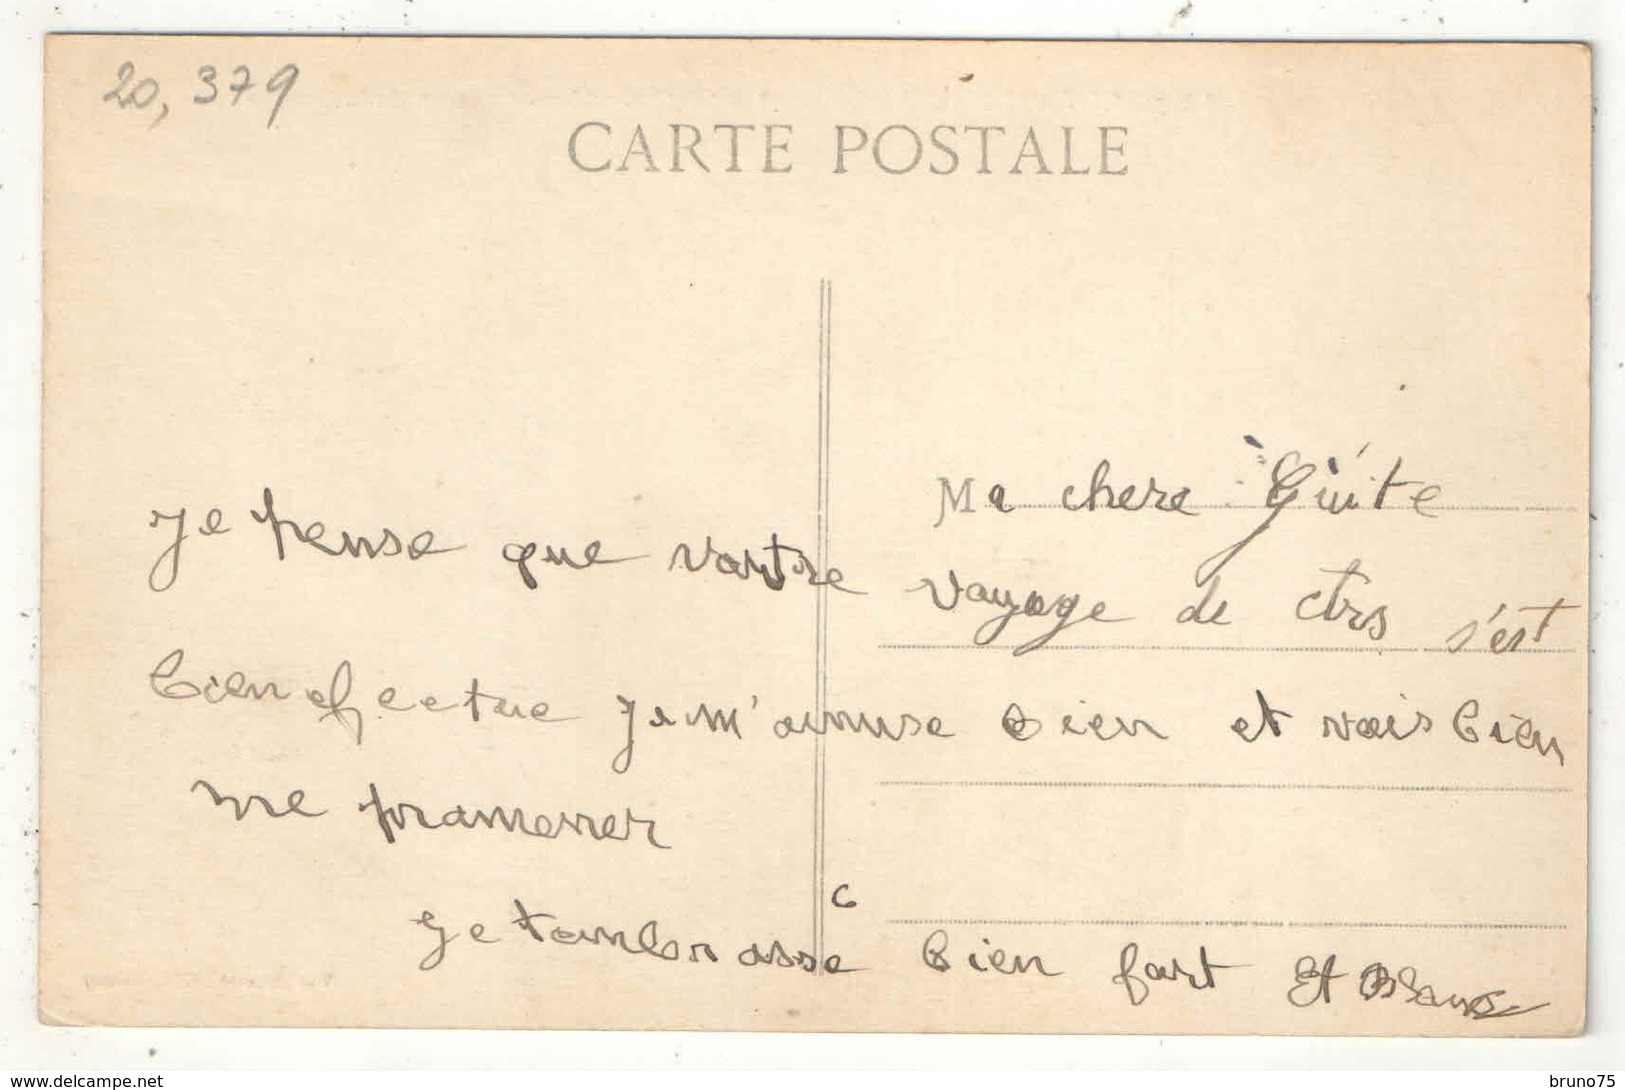 20, 379
CARTE POSTALE
Ma chere Guite
Je pense que vortre voyage de ctrs s'est
bien efectue Je m'amuse bien et vais bien
me pramener
Je t'ambrasse bien fort Et
www.delcampe.net
bruno75